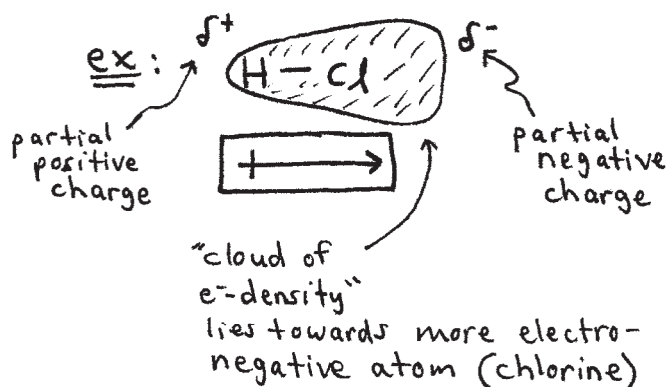 ex: δ+ H — Cl δ-
partial
positive
charge
partial
negative
charge
"cloud of
e⁻-density"
lies towards more electro-
negative atom (chlorine)